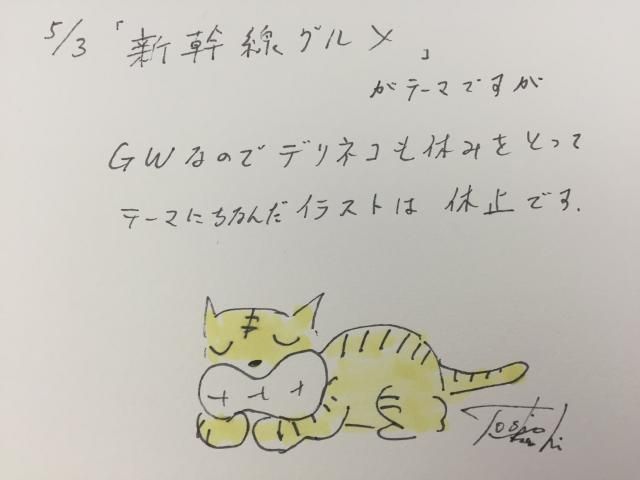 5/3「新幹線グルメ」
がテーマですが
GWなのでデリネコも休みをとって
テーマにちなんだイラストは 休止です.